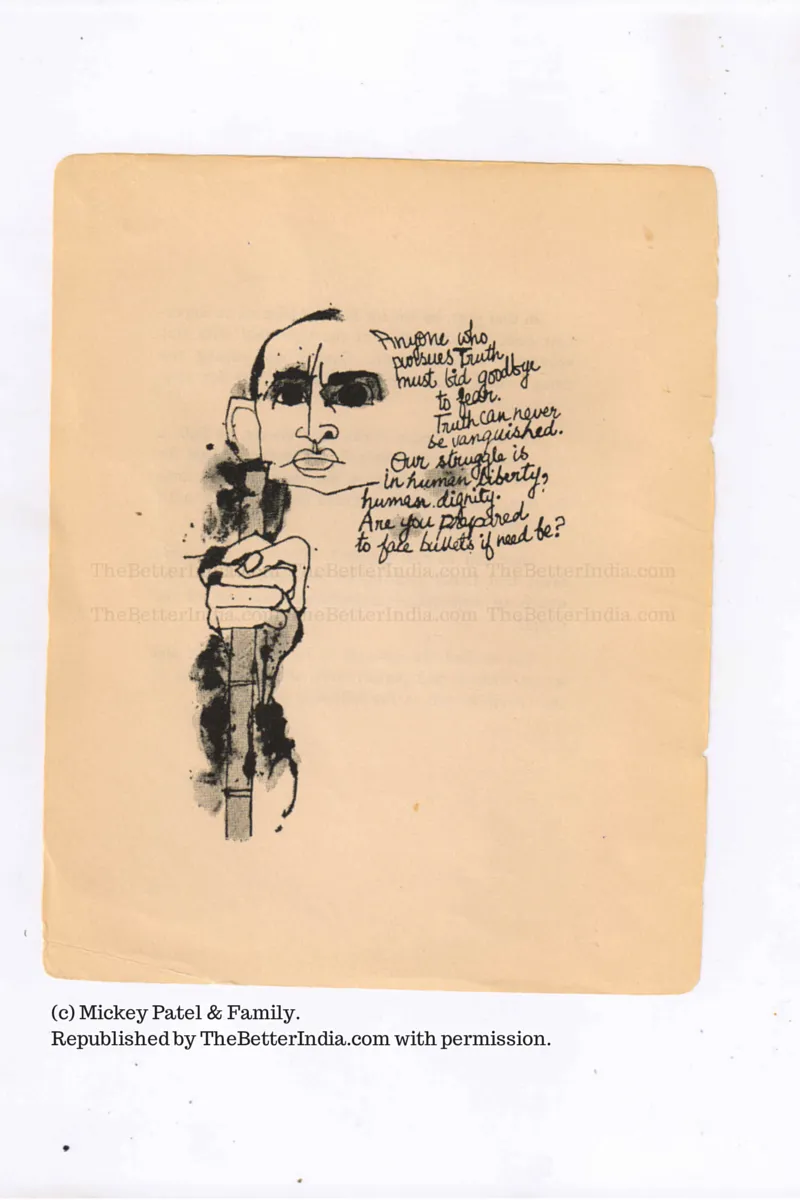 Anyone who
pursues Truth
must bid goodbye
to fear.
Truth can never
be vanquished.
Our struggle is
in human liberty,
human dignity.
Are you prepared
to face bullets if need be?
TheBetterIndia.com TheBetterIndia.com TheBetterIndia.com
TheBetterIndia.com TheBetterIndia.com TheBetterIndia.com
(c) Mickey Patel & Family.
Republished by TheBetterIndia.com with permission.